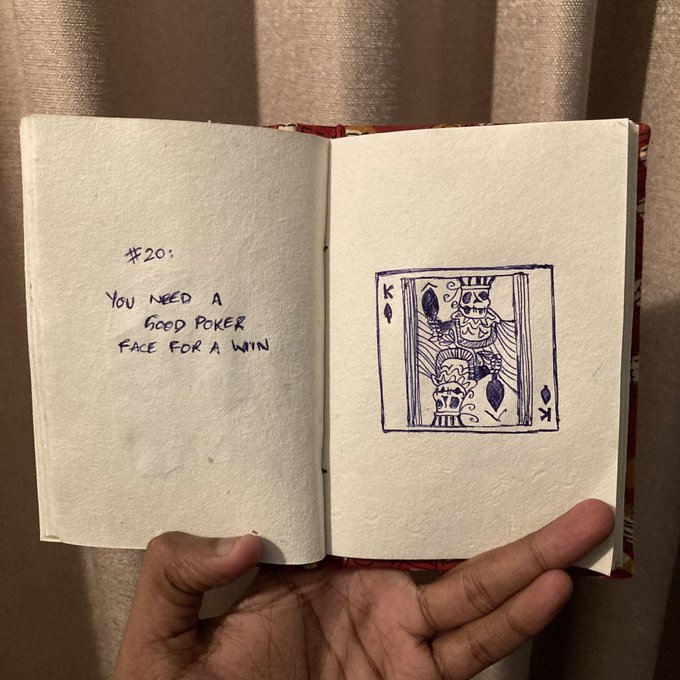 #20:
YOU NEED A
GOOD POKER
FACE FOR A WIN
K
K